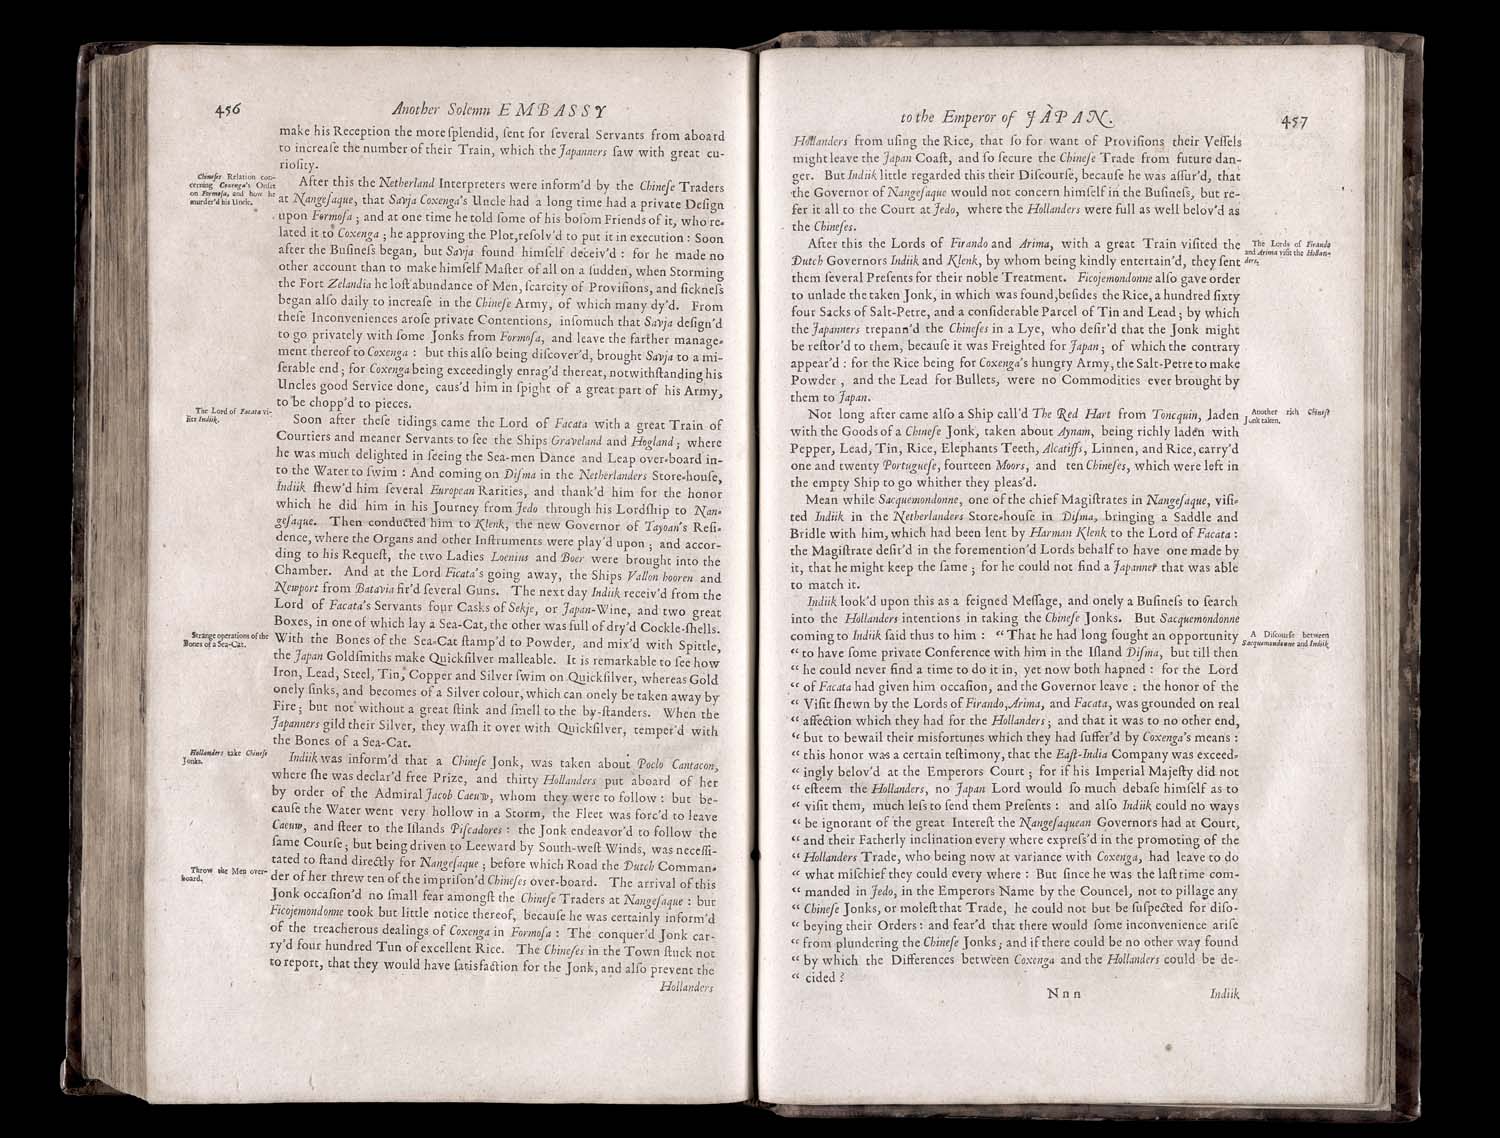 456
Another Solemn EMBASSY
make his Reception the more ſplendid, ſent for ſeveral Servants from aboard
to increaſe the number of their Train, which the Japanners ſaw with great cu-
rioſity.
Chineſes Relation con-
cerning Coxenga's Onſet
on Formoſa, and how he
murder'd his Uncle.
After this the Netherland Interpreters were inform'd by the Chineſe Traders
at Nangeſaque, that Savja Coxenga's Uncle had a long time had a private Deſign
upon Formoſa; and at one time he told ſome of his boſom Friends of it, who re-
lated it to Coxenga; he approving the Plot, reſolv'd to put it in execution: Soon
after the Buſineſs began, but Savja found himſelf deceiv'd: for he made no
other account than to make himſelf Maſter of all on a ſudden, when Storming
the Fort Zelandia he loſt abundance of Men, ſcarcity of Proviſions, and ſickneſs
began alſo daily to increaſe in the Chineſe Army, of which many dy'd. From
theſe Inconveniences aroſe private Contentions, inſomuch that Savja deſign'd
to go privately with ſome Jonks from Formoſa, and leave the farther manage-
ment thereof to Coxenga: but this alſo being diſcover'd, brought Savja to a mi-
ſerable end; for Coxenga being exceedingly enrag'd thereat, notwithſtanding his
Uncles good Service done, caus'd him in ſpight of a great part of his Army,
to be chopp'd to pieces.
The Lord of Facata vi-
ſits Indiik.
Soon after theſe tidings came the Lord of Facata with a great Train of
Courtiers and meaner Servants to ſee the Ships Graveland and Hogland; where
he was much delighted in ſeeing the Sea-men Dance and Leap over-board in-
to the Water to ſwim: And coming on Diſma in the Netherlanders Store-houſe,
Indiik ſhew'd him ſeveral European Rarities, and thank'd him for the honor
which he did him in his Journey from Jedo through his Lordſhip to Nan-
geſaque. Then conducted him to Klenk, the new Governor of Tayoan's Reſi-
dence, where the Organs and other Inſtruments were play'd upon; and accor-
ding to his Requeſt, the two Ladies Loenius and Boer were brought into the
Chamber. And at the Lord Ficata's going away, the Ships Vallon hooren and
Newport from Batavia fir'd ſeveral Guns. The next day Indiik receiv'd from the
Lord of Facata's Servants four Casks of Sekje, or Japan-Wine, and two great
Boxes, in one of which lay a Sea-Cat, the other was full of dry'd Cockle-ſhells.
Strange operations of the
Bones of a Sea-Cat.
With the Bones of the Sea-Cat ſtamp'd to Powder, and mix'd with Spittle,
the Japan Goldſmiths make Quickſilver malleable. It is remarkable to ſee how
Iron, Lead, Steel, Tin, Copper and Silver ſwim on Quickſilver, whereas Gold
onely ſinks, and becomes of a Silver colour, which can onely be taken away by
Fire; but not without a great ſtink and ſmell to the by-ſtanders. When the
Japanners gild their Silver, they waſh it over with Quickſilver, temper'd with
the Bones of a Sea-Cat.
Hollanders take Chineſe
Jonks.
Indiik was inform'd that a Chineſe Jonk, was taken about Poclo Cantacon,
where ſhe was declar'd free Prize, and thirty Hollanders put aboard of her
by order of the Admiral Jacob Caeuw, whom they were to follow: but be-
cauſe the Water went very hollow in a Storm, the Fleet was forc'd to leave
Caeuw, and ſteer to the Iſlands Piſcadores: the Jonk endeavor'd to follow the
ſame Courſe; but being driven to Leeward by South-weſt Winds, was neceſſi-
tated to ſtand directly for Nangeſaque; before which Road the Dutch Comman-
Throw the Men over-
board.
der of her threw ten of the impriſon'd Chineſes over-board. The arrival of this
Jonk occaſion'd no ſmall fear amongſt the Chineſe Traders at Nangeſaque: but
Ficojemondonne took but little notice thereof, becauſe he was certainly inform'd
of the treacherous dealings of Coxenga in Formoſa: The conquer'd Jonk car-
ry'd four hundred Tun of excellent Rice. The Chineſes in the Town ſtuck not
to report, that they would have ſatisfaction for the Jonk, and alſo prevent the
Hollanders
to the Emperor of JAPAN.
457
Hollanders from uſing the Rice, that ſo for want of Proviſions their Veſſels
might leave the Japan Coaſt, and ſo ſecure the Chineſe Trade from future dan-
ger. But Indiik little regarded this their Diſcourſe, becauſe he was aſſur'd, that
the Governor of Nangeſaque would not concern himſelf in the Buſineſs, but re-
fer it all to the Court at Jedo, where the Hollanders were full as well belov'd as
the Chineſes.
After this the Lords of Firando and Arima, with a great Train viſited the
Dutch Governors Indiik and Klenk, by whom being kindly entertain'd, they ſent
The Lords of Firando
and Arima viſit the Hollan-
ders.
them ſeveral Preſents for their noble Treatment. Ficojemondonne alſo gave order
to unlade the taken Jonk, in which was found, beſides the Rice, a hundred ſixty
four Sacks of Salt-Petre, and a conſiderable Parcel of Tin and Lead; by which
the Japanners trepann'd the Chineſes in a Lye, who deſir'd that the Jonk might
be reſtor'd to them, becauſe it was Freighted for Japan; of which the contrary
appear'd: for the Rice being for Coxenga's hungry Army, the Salt-Petre to make
Powder, and the Lead for Bullets, were no Commodities ever brought by
them to Japan.
Not long after came alſo a Ship call'd The Red Hart from Toncquin, laden
Another rich Chineſe
Jonk taken.
with the Goods of a Chineſe Jonk, taken about Aynam, being richly laden with
Pepper, Lead, Tin, Rice, Elephants Teeth, Alcatiffs, Linnen, and Rice, carry'd
one and twenty Portugueſe, fourteen Moors, and ten Chineſes, which were left in
the empty Ship to go whither they pleas'd.
Mean while Sacquemondonne, one of the chief Magiſtrates in Nangeſaque, viſi-
ted Indiik in the Netherlanders Store-houſe in Diſma, bringing a Saddle and
Bridle with him, which had been lent by Harman Klenk to the Lord of Facata:
the Magiſtrate deſir'd in the foremention'd Lords behalf to have one made by
it, that he might keep the ſame; for he could not find a Japanner that was able
to match it.
Indiik look'd upon this as a feigned Meſſage, and onely a Buſineſs to ſearch
into the Hollanders intentions in taking the Chineſe Jonks. But Sacquemondonne
coming to Indiik ſaid thus to him: “That he had long ſought an opportunity
A Diſcourſe between
Sacquemondonne and Indiik.
“ to have ſome private Conference with him in the Iſland Diſma, but till then
“ he could never find a time to do it in, yet now both hapned: for the Lord
“ of Facata had given him occaſion, and the Governor leave: the honor of the
“ Viſit ſhewn by the Lords of Firando, Arima, and Facata, was grounded on real
“ affection which they had for the Hollanders; and that it was to no other end,
“ but to bewail their misfortunes which they had ſuffer'd by Coxenga's means:
“ this honor was a certain teſtimony, that the Eaſt-India Company was exceed-
“ ingly belov'd at the Emperors Court; for if his Imperial Majeſty did not
“ eſteem the Hollanders, no Japan Lord would ſo much debaſe himſelf as to
“ viſit them, much leſs to ſend them Preſents: and alſo Indiik could no ways
“ be ignorant of the great Intereſt the Nangeſaquean Governors had at Court,
“ and their Fatherly inclination every where expreſs'd in the promoting of the
“ Hollanders Trade, who being now at variance with Coxenga, had leave to do
“ what miſchief they could every where: But ſince he was the laſt time com-
“ manded in Jedo, in the Emperors Name by the Councel, not to pillage any
“ Chineſe Jonks, or moleſt that Trade, he could not but be ſuſpected for diſo-
“ beying their Orders: and fear'd that there would ſome inconvenience ariſe
“ from plundering the Chineſe Jonks; and if there could be no other way found
“ by which the Differences between Coxenga and the Hollanders could be de-
“ cided?
Nnn
Indiik